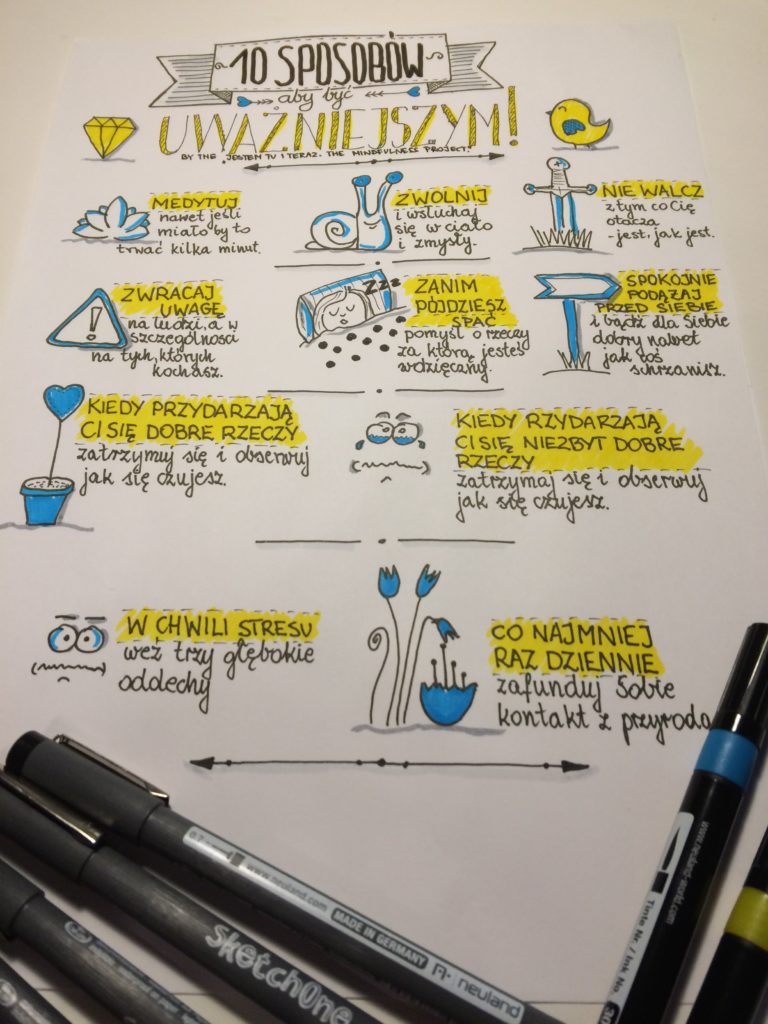 10 SPOSOBÓW
aby być
UWAŻNIEJSZYM!
BY THE JESTEM TU I TERAZ. THE MINDFULNESS PROJECT.
MEDYTUJ
nawet jeśli
miało by to
trwać kilka minut.
ZWOLNIJ
i wsłuchaj
się w ciało
i zmysły.
NIE WALCZ
z tym co Cię
otacza
- jest, jak jest.
ZWRACAJ
UWAGĘ
na ludzi, a w
szczególności
na tych, których
kochasz.
zzz
ZANIM
PÓJDZIESZ
SPAĆ
pomyśl o rzeczy
za którą jesteś
wdzięczny.
SPOKOJNIE
PODĄŻAJ
PRZED SIEBIE
i bądź dla Siebie
dobry nawet
jak coś
schrzanisz.
KIEDY PRZYDARZAJĄ
CI SIĘ DOBRE RZECZY
zatrzymuj się i obserwuj
jak się czujesz.
KIEDY RZYDARZAJĄ
CI SIĘ NIEZBYT DOBRE
RZECZY
zatrzymaj się i obserwuj
jak się czujesz.
W CHWILI STRESU
weź trzy głębokie
oddechy
CO NAJMNIEJ
RAZ DZIENNIE
zafunduj Sobie
kontakt z przyrodą
0.7 www.neuland.com MADE IN GERMANY neuland
sketchOne
www.neuland-world.com
Tinte Nr. / Ink No.